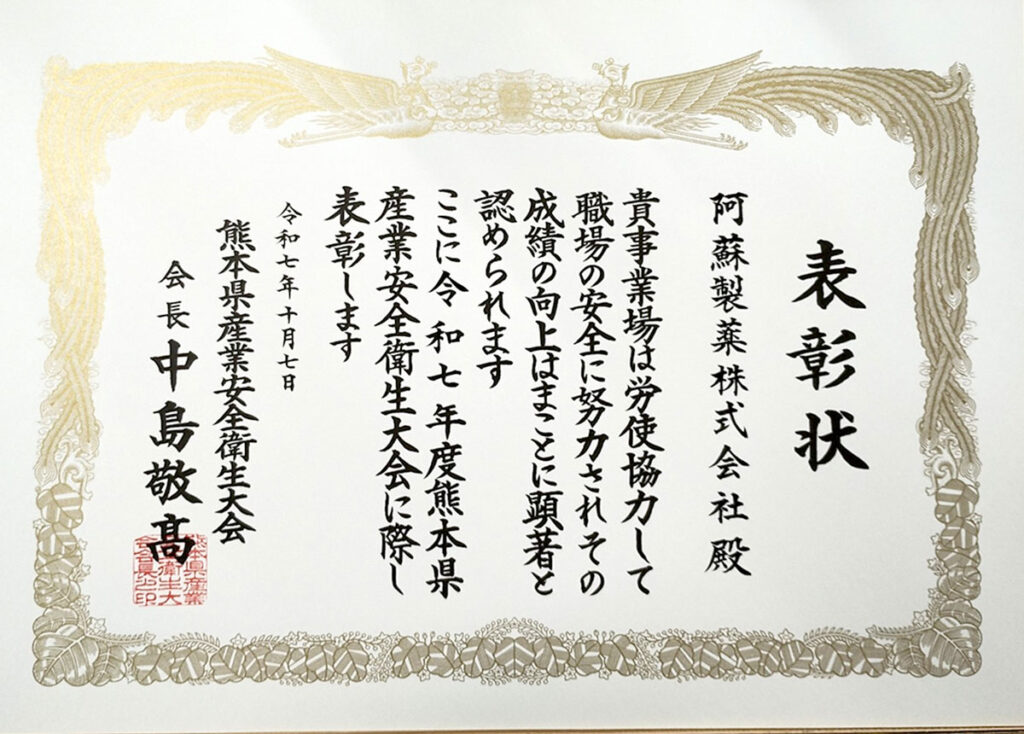 表彰状
阿蘇製薬株式会社殿
貴事業場は労使協力して
職場の安全に努力されその
成績の向上はまことに顕著と
認められます
ここに令和七年度熊本県
産業安全衛生大会に際し
表彰します
令和七年十月七日
熊本県産業安全衛生大会
会長 中島敬髙